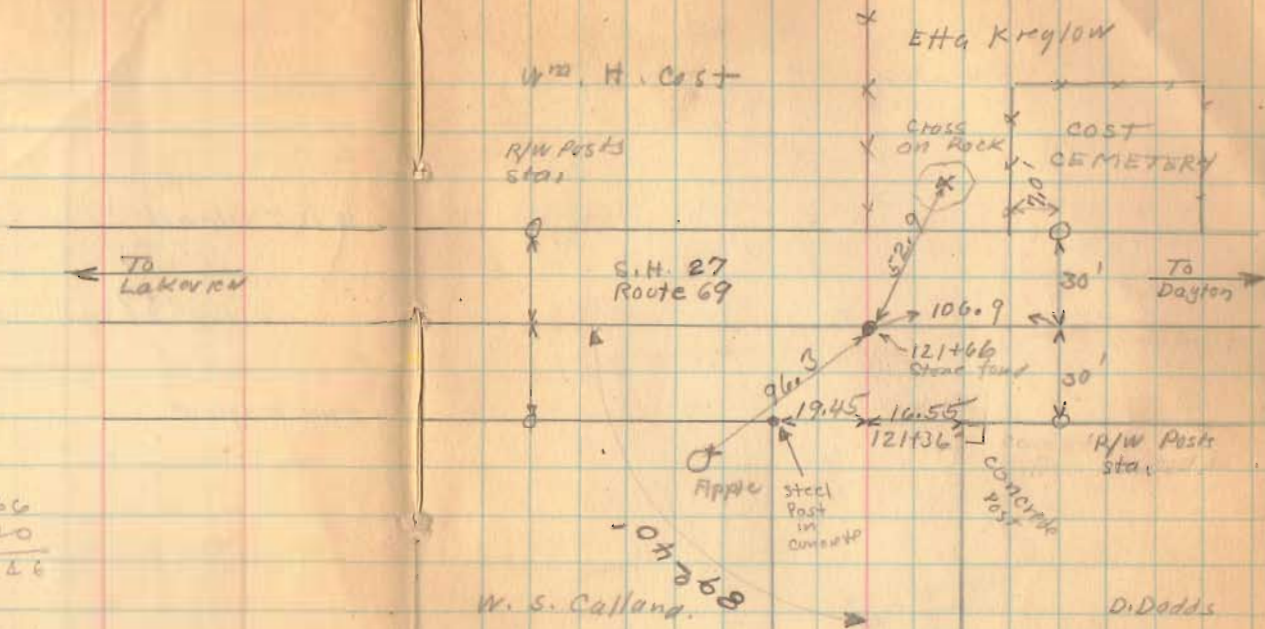 Etta Kreglow
Wm. H. Cost
Cross
on Rock
COST
CEMETERY
R/W Posts
Sta.
7.0'
52.9
To
Lakeview
S.H. 27
Route 69
30'
To
Dayton
106.9
121+66
Stone found
96.3
30'
19.45
16.55
121+36
R/W Posts
sta.
Apple
Steel
Post
in
concrete
Concrete
Post
W. S. Calland.
D. Dodds